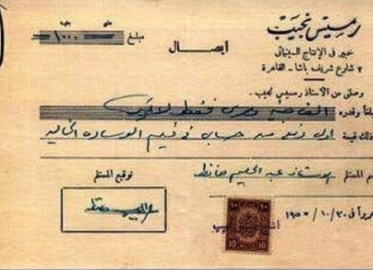 رمسيس نجيب
خبير فى الإنتاج السينمائى
٢ شارع شريف باشا - القاهرة
ايصال
مبلغ ١٠٠٠
وصلنى من الأستاذ رمسيس نجيب
مبلغا وقدره الف جنيه مصرى فقط لا غير
وذلك قيمة اول دفعه من حساب فيلم الوساده الخاليه
اسم المستلم عبد الحليم حافظ
توقيع المستلم
تحريراً فى ٣٠ / ١٠ / ١٩٥٥
١٠
10